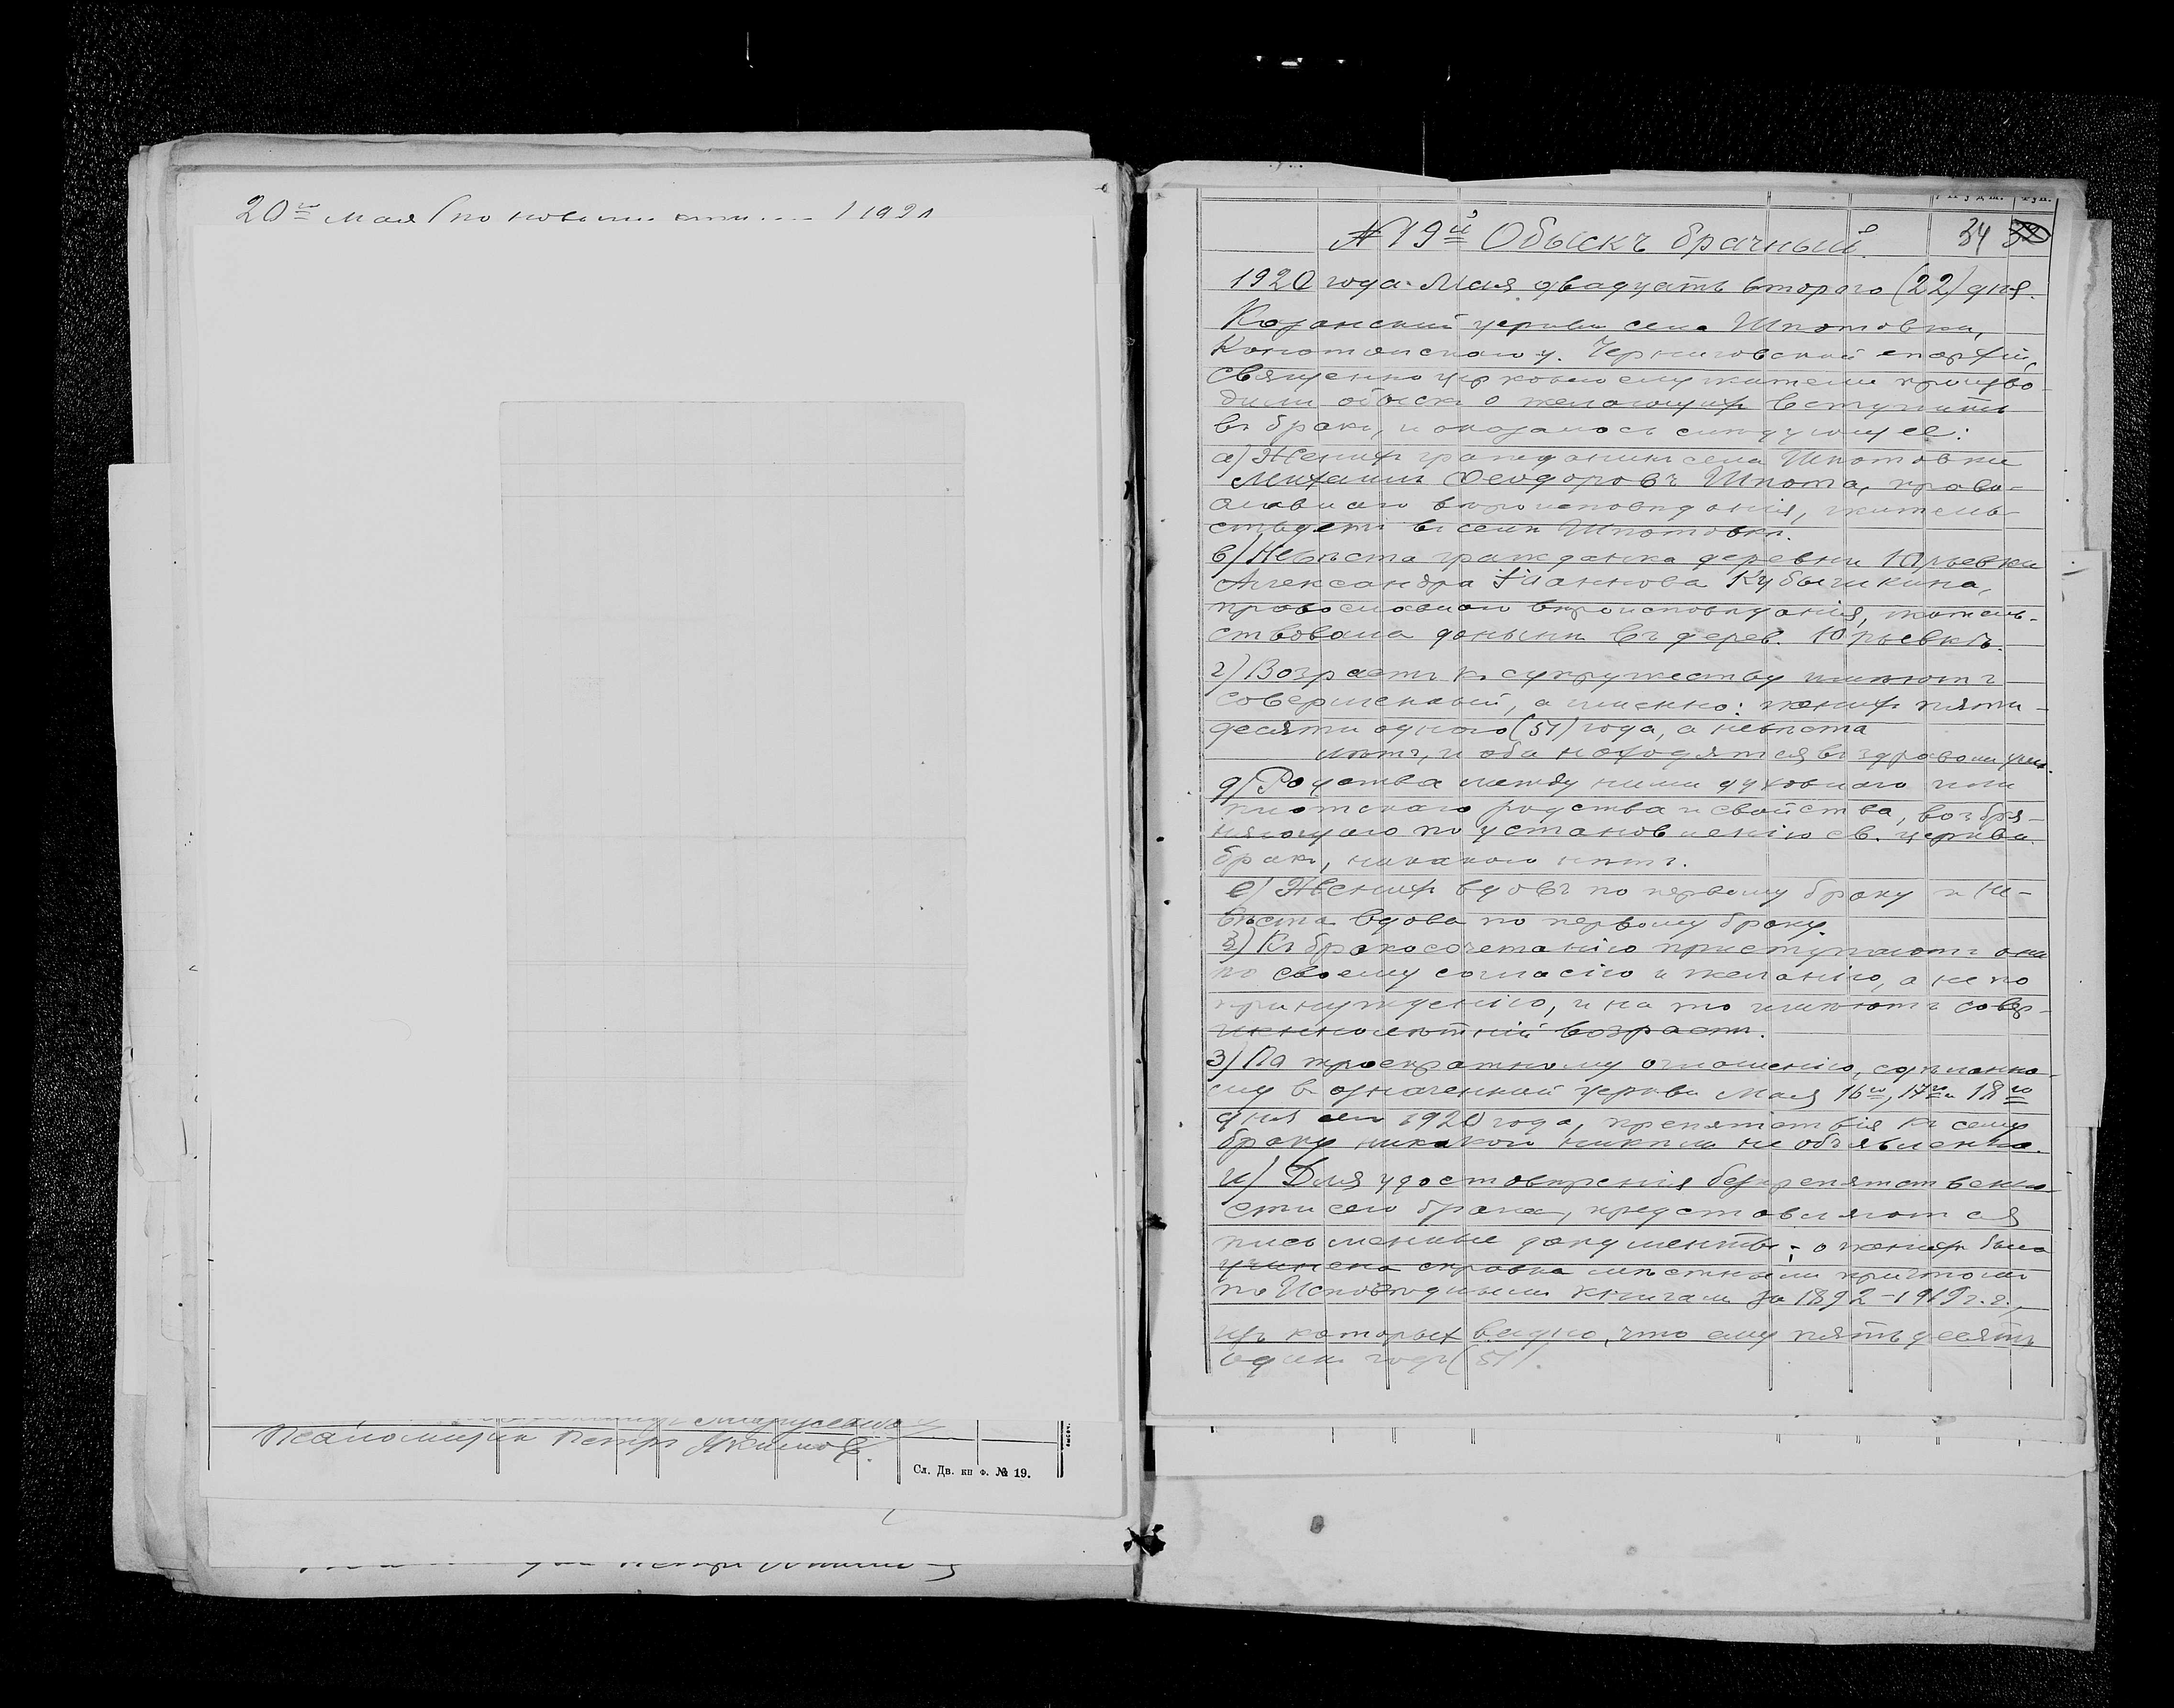 20го мая (по новому 1920
Псаломщикъ Петръ Якимов.
Сл. Дв. кн ф. № 19.
34
№ 19й Обыскъ брачный.
1920 года Мая двадцать второго (22) дня.
Казанской церкви села Шпотовки,
Конотопскаго у. Черниговской епархіи,
священно церковно служители произво-
дили обыскъ о желающихъ вступить
въ бракъ, и оказалось слѣдующее:
а) Женихъ гражданинъ села Шпотовки
Михаилъ Феодоровъ Шпота, право-
славнаго вѣроисповѣданія, житель-
ствуетъ въ селѣ Шпотовкѣ.
в) Невѣста гражданка деревни Юрьевки
Александра Іоаннова Кубышкина,
православнаго вѣроисповѣданія, житель-
ствовала донынѣ въ дерев. Юрьевкѣ.
г) Возрастъ къ супружеству имѣютъ
совершенный, а именно: женихъ пяти-
десяти одного (51) года, а невѣста
лѣтъ, и оба находятся въ здравомъ умѣ.
д) Родства между ними духовного или
плотскаго родства и свойства, возбра-
няющаго по установленію св. церкви
бракъ, никакого нѣтъ.
е) Женихъ вдовъ по первому браку и не-
вѣста вдова по первому браку.
ж) Къ бракосочетанію приступаютъ они
по своему согласію и желанію, а не по
принужденію, и на то имѣютъ совер-
шеннолѣтній возрастъ.
з) По троекратному оглашенію, сдѣланно-
му въ означенной церкви Мая 16го, 17го и 18го
дня сего 1920 года, препятствія къ сему
браку никакого никѣмъ не объявлено.
и) Для удостовѣренія безпрепятственно-
сти сего брака, представляются
письменные документы: о женихѣ была
учинена справка мѣстнымъ причтомъ
по Исповѣднымъ книгамъ за 1892-1919 г.г.,
изъ которыхъ видно, что ему пятьдесятъ
одинъ годъ (51).